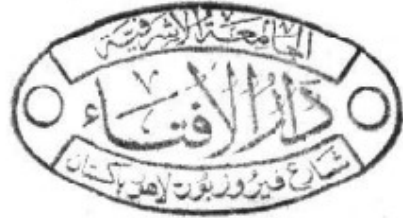 الجامعة الاشرفية
دار الافتاء
شارع فيروزبور لاهور باكستان